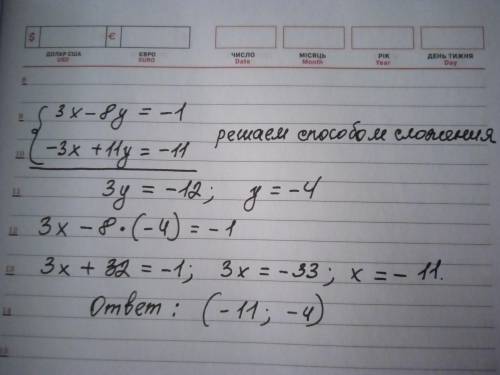 $ €
ДОЛАР США ЄВРО ЧИСЛО МІСЯЦЬ РІК ДЕНЬ ТИЖНЯ
USD EURO Date Month Year Day
8
9 3x - 8y = -1
решаем способом сложения
10 -3x + 11y = -11
11 3y = -12; y = -4
12 3x - 8 · (-4) = -1
13 3x + 32 = -1; 3x = -33; x = -11.
14 Ответ: (-11; -4)